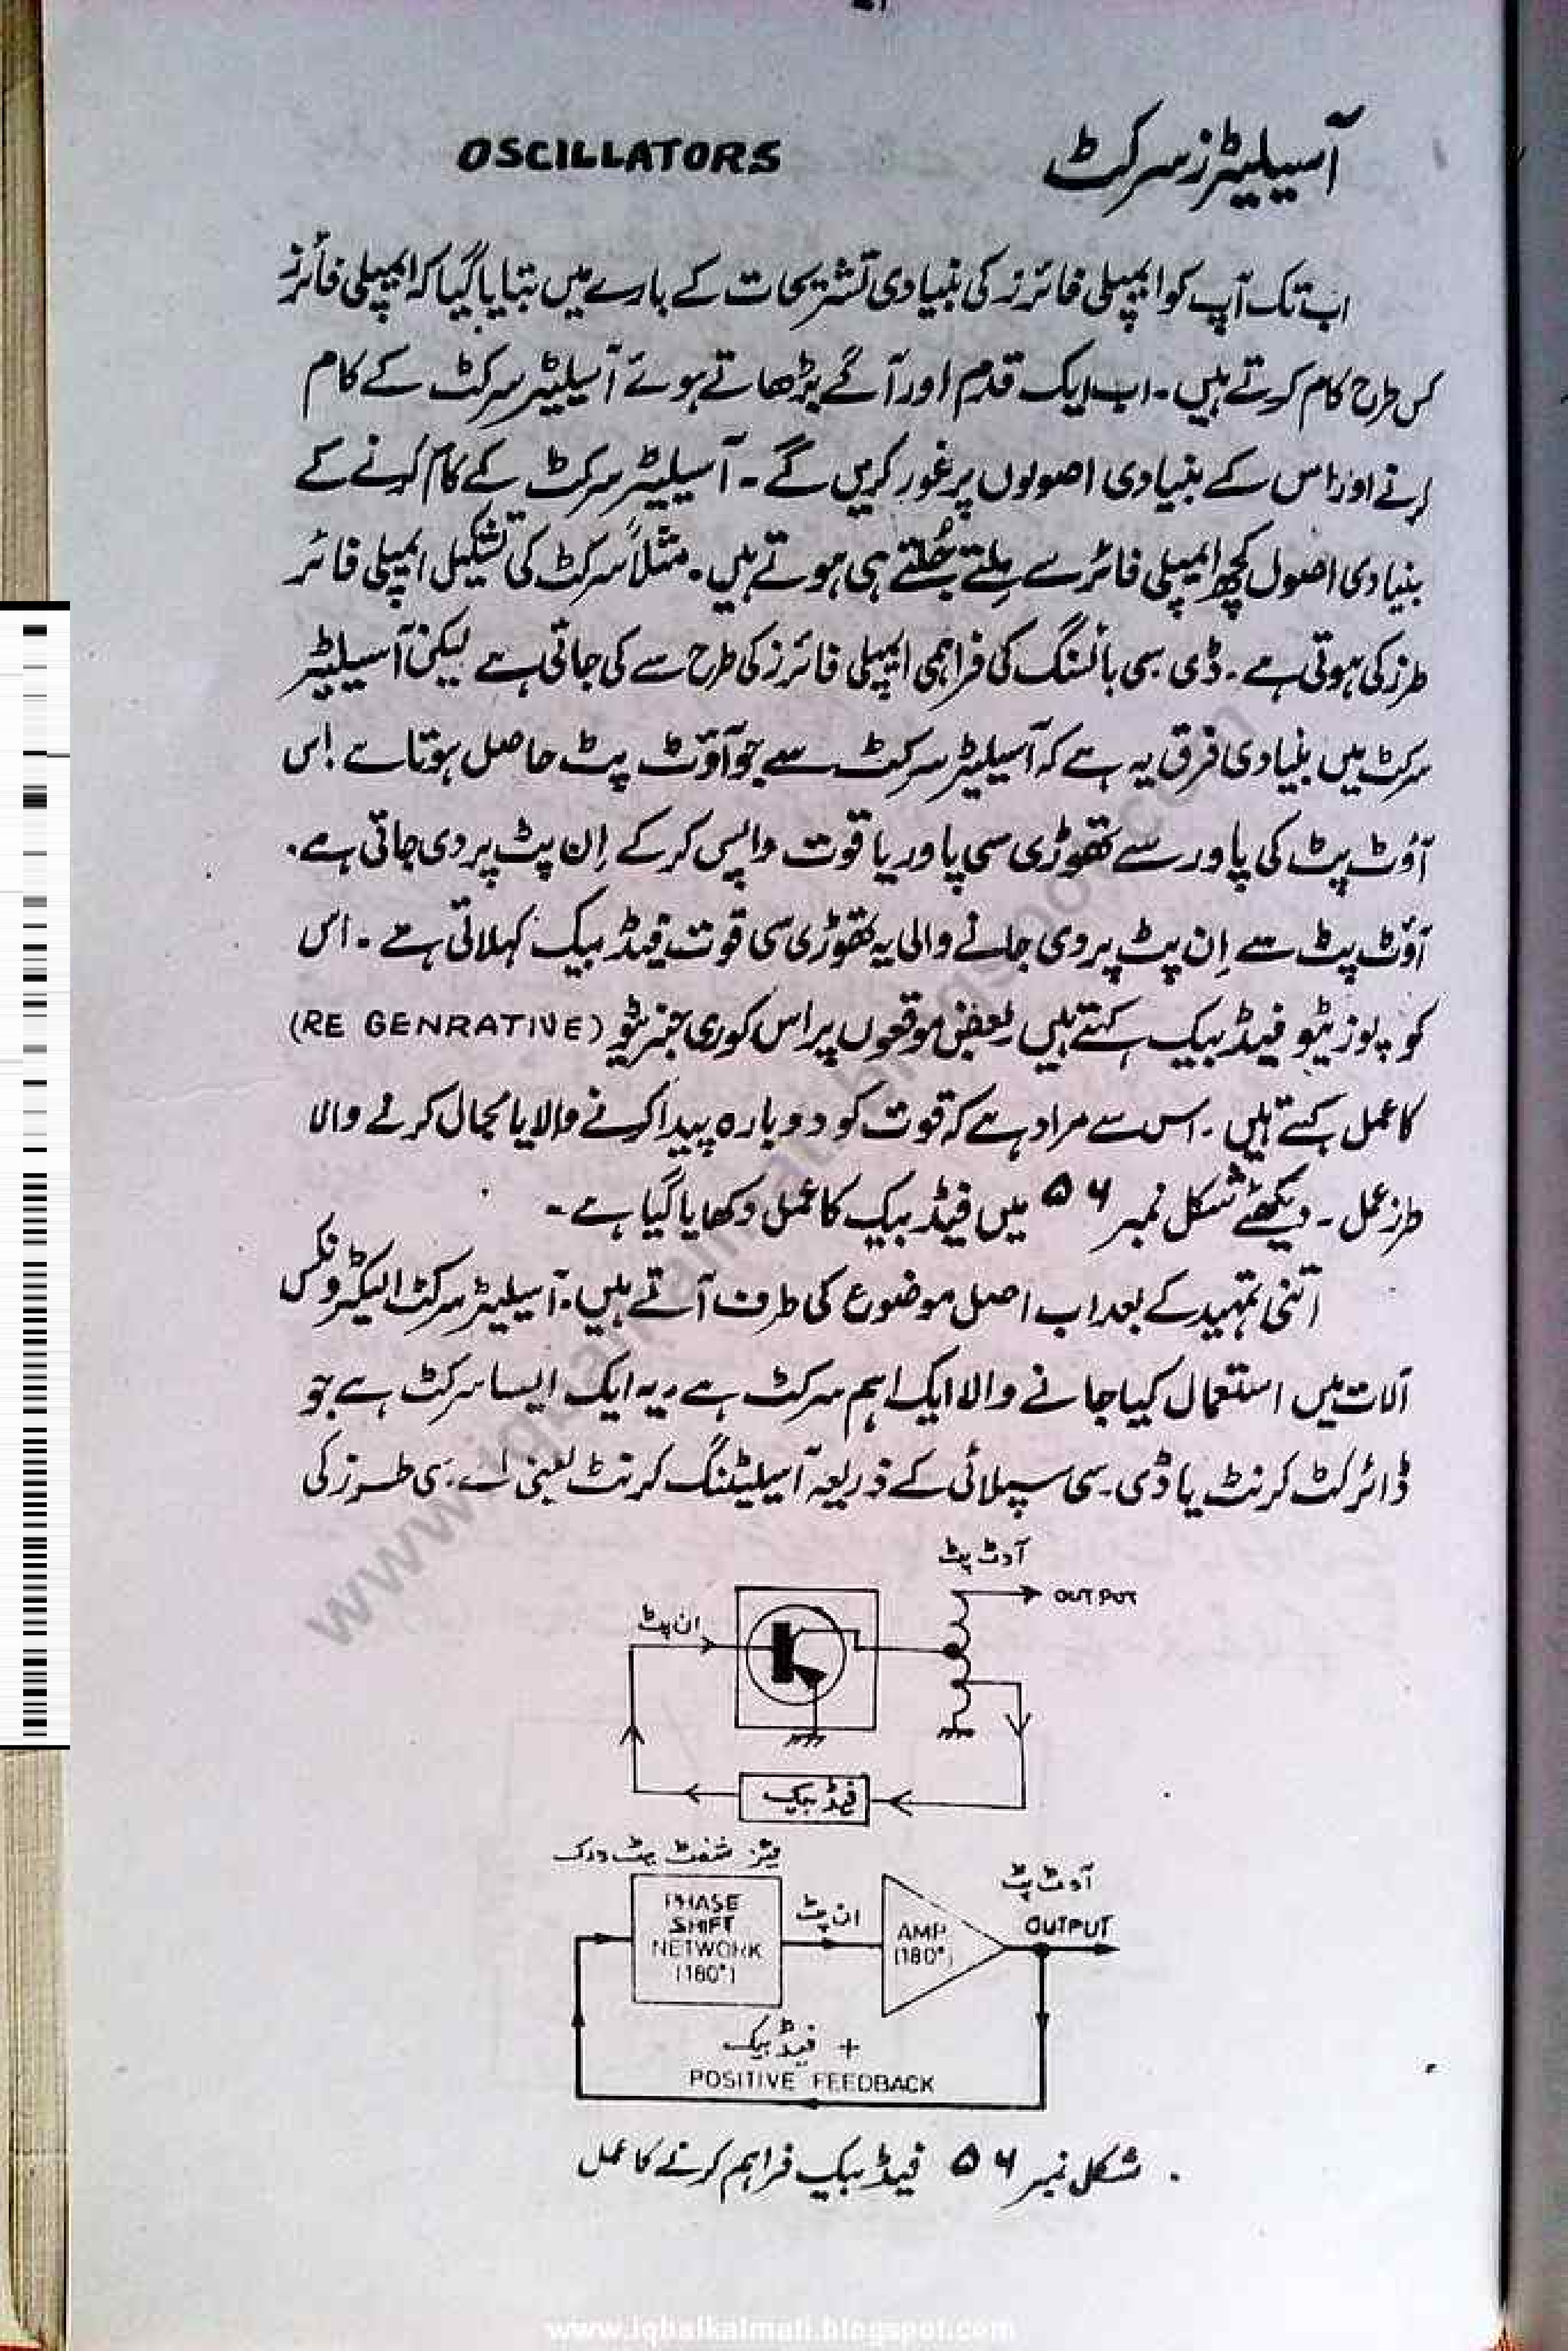 آسیلیٹرز سرکٹ OSCILLATORS
اب تک آپ کو ایمپلی فائرز کی بنیادی تشریحات کے بارے میں بتایا گیا کہ ایمپلی فائرز
کس طرح کام کرتے ہیں ۔ اب ایک قدم اور آگے بڑھاتے ہوئے آسیلیٹر سرکٹ کے کام
کرنے اور اس کے بنیادی اصولوں پر غور کریں گے ۔ آسیلیٹر سرکٹ کے کام کرنے کے
بنیادی اصول کچھ ایمپلی فائر سے ملتے جُلتے ہی ہوتے ہیں ۔ مثلاً سرکٹ کی تشکیل ایمپلی فائر
طرز کی ہوتی ہے ۔ ڈی سی بائسنگ کی فراہمی ایمپلی فائرز کی طرح سے کی جاتی ہے لیکن آسیلیٹر
سرکٹ میں بنیادی فرق یہ ہے کہ آسیلیٹر سرکٹ سے جو آؤٹ پٹ حاصل ہوتا ہے اس
آؤٹ پٹ کی پاور سے تھوڑی سی پاور یا قوت واپس کر کے اِن پٹ پر دی جاتی ہے ۔
آؤٹ پٹ سے اِن پٹ پر دی جانے والی یہ تھوڑی سی قوت فیڈ بیک کہلاتی ہے ۔ اس
کو پوزیٹو فیڈ بیک کہتے ہیں بعض موقعوں پر اس کو ری جنریٹو (RE GENRATIVE)
کا عمل کہتے ہیں ۔ اس سے مراد ہے کہ قوت کو دوبارہ پیدا کرنے والا یا بحال کرنے والا
طرز عمل ۔ دیکھئے شکل نمبر ۵۶ میں فیڈ بیک کا عمل دکھایا گیا ہے ۔
اتنی تمہید کے بعد اب اصل موضوع کی طرف آتے ہیں ۔ آسیلیٹر سرکٹ الیکٹرونکس
آلات میں استعمال کیا جانے والا ایک اہم سرکٹ ہے ۔ یہ ایک ایسا سرکٹ ہے جو
ڈائرکٹ کرنٹ یا ڈی ۔ سی سپلائی کے ذریعہ آسیلیٹنگ کرنٹ یعنی اے ۔ سی طرز کی
آوٹ پٹ
OUTPUT
ان پٹ
فیڈ بیک
فیز شفٹ نیٹ ورک
PHASE
SHIFT
NETWORK
(180°)
ان پٹ
AMP
(180°)
آوٹ پٹ
OUTPUT
+ فیڈ بیک
POSITIVE FEEDBACK
شکل نمبر ۵۶ فیڈ بیک فراہم کرنے کا عمل
www.iqbalkalmati.blogspot.com
www.iqbalkalmati.blogspot.com